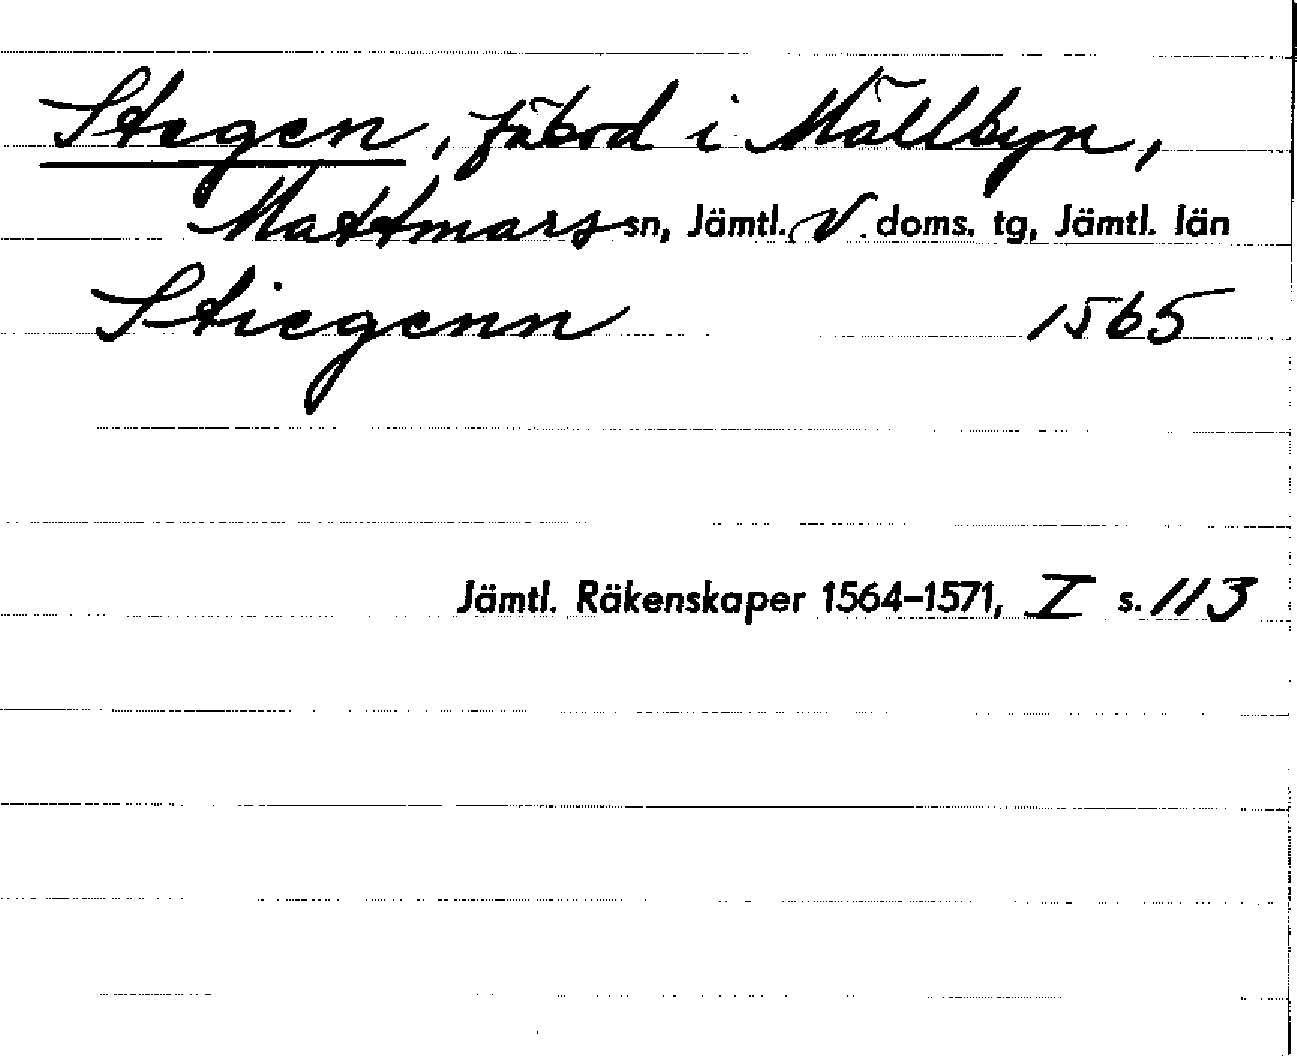 Stegen, fäbod i Mällbyn,
Mattmars sn, Jämtl. V. doms. tg, Jämtl. län
Stiegenn 1565
Jämtl. Räkenskaper 1564-1571, I s. 113